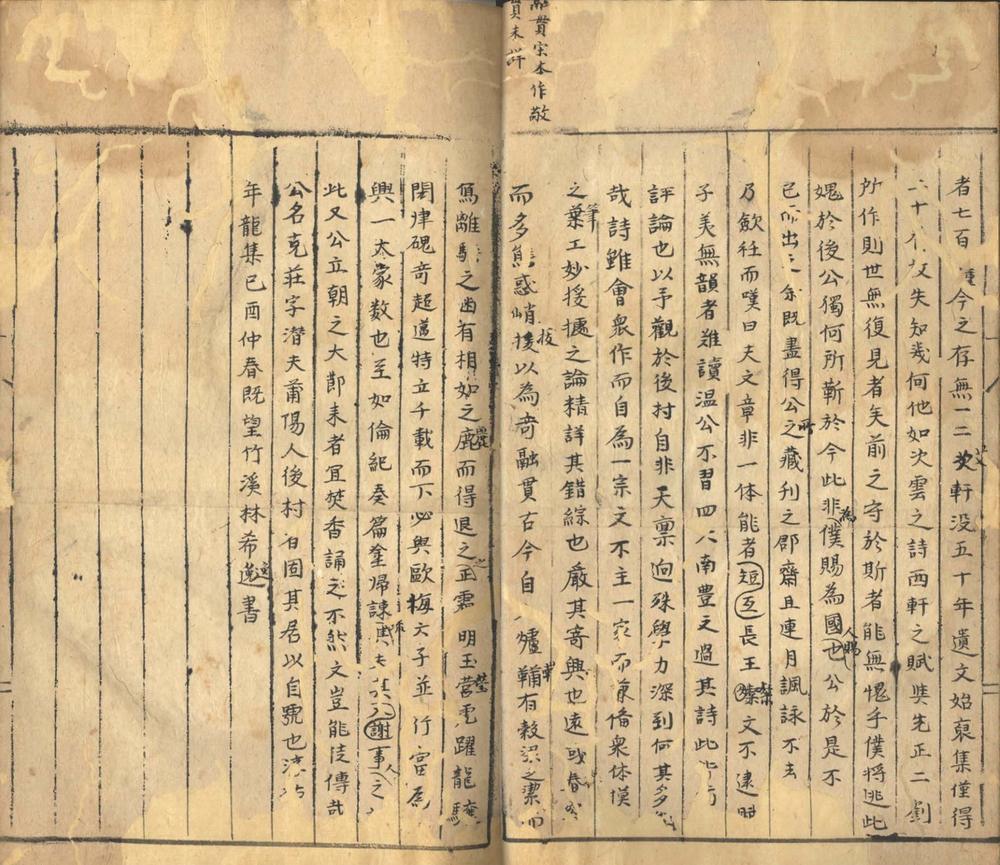 融貫宋本作敵
貫未詳
者七百 今之存無一二次軒没五十年遺文始裒集僅得
六十 失知幾何他如次雲之詩西軒之賦與先正二劉
所作則世無復見者矣前之守於斯者能無愧乎僕將逃此
媿於後公獨何所靳於今此非僕賜為國也公於是不
已而出之余既盡得公之藏刋之郡齋且連月諷詠不去
乃歛衽而嘆曰夫文章非一体能者短互長王燦文不逮時
子美無韻者難讀温公不習四六南豊文過其詩此
評論也以予觀於後村自非天禀迥殊學力深到何其多
哉詩雖會衆作而自為一宗文不主一家而兼備衆体模
之筆工妙授據之論精詳其錯綜也嚴其竒興也遠或舂
而多態惑峭拔以為竒融貫古今自 爐鞴有穀 之潔而
寫離騷之幽有相如之麗而得退之之正霈 明玉瑩虎躍龍
閑律磈竒超邁特立千載而下必與歐梅六子並行當為
興一大家数也至如倫紀奏篇塗帰諫 夫 謝事之
此又公立朝之大節耒者宜焚香誦之不然文豈能徒傳哉
公名克莊字潜夫莆陽人後村 固其居以自號也淳
年龍集已酉仲春既望竹溪林希逸書